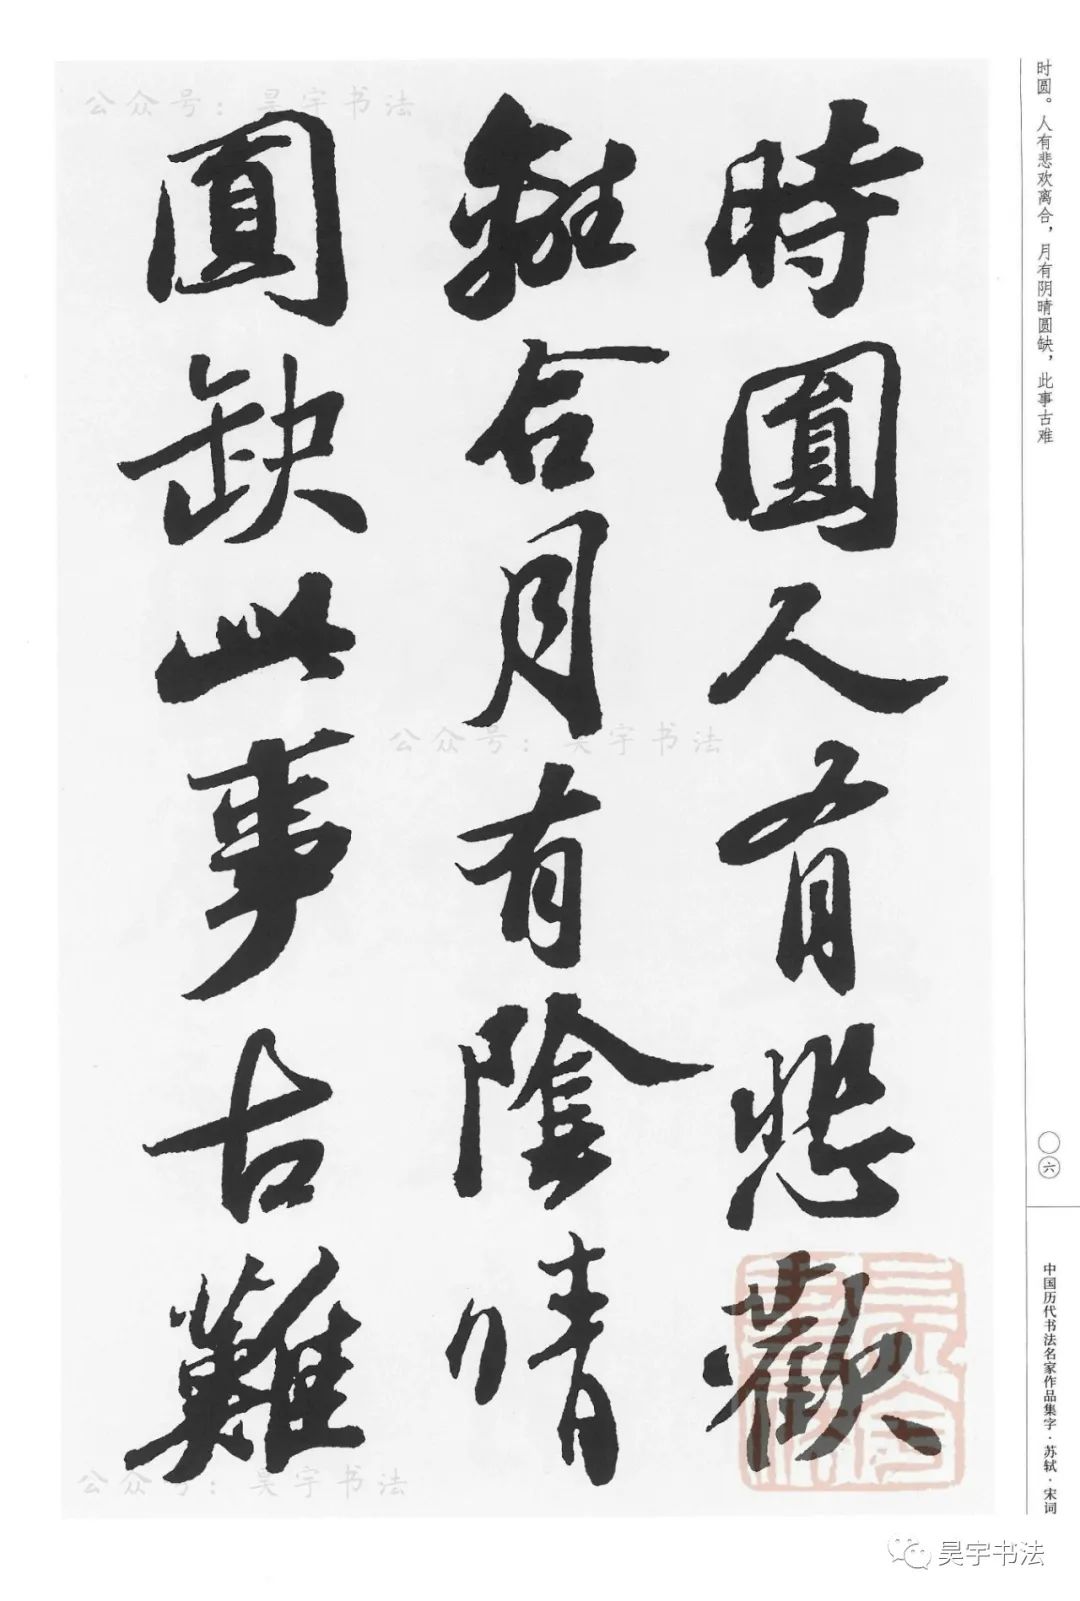 時圓人有悲歡
離合月有陰晴
圓缺此事古難
时圆。人有悲欢离合，月有阴晴圆缺，此事古难
〇六
中国历代书法名家作品集字·苏轼·宋词
公众号：昊宇书法
公众号：昊宇书法
公众号：昊宇书法
昊宇书法